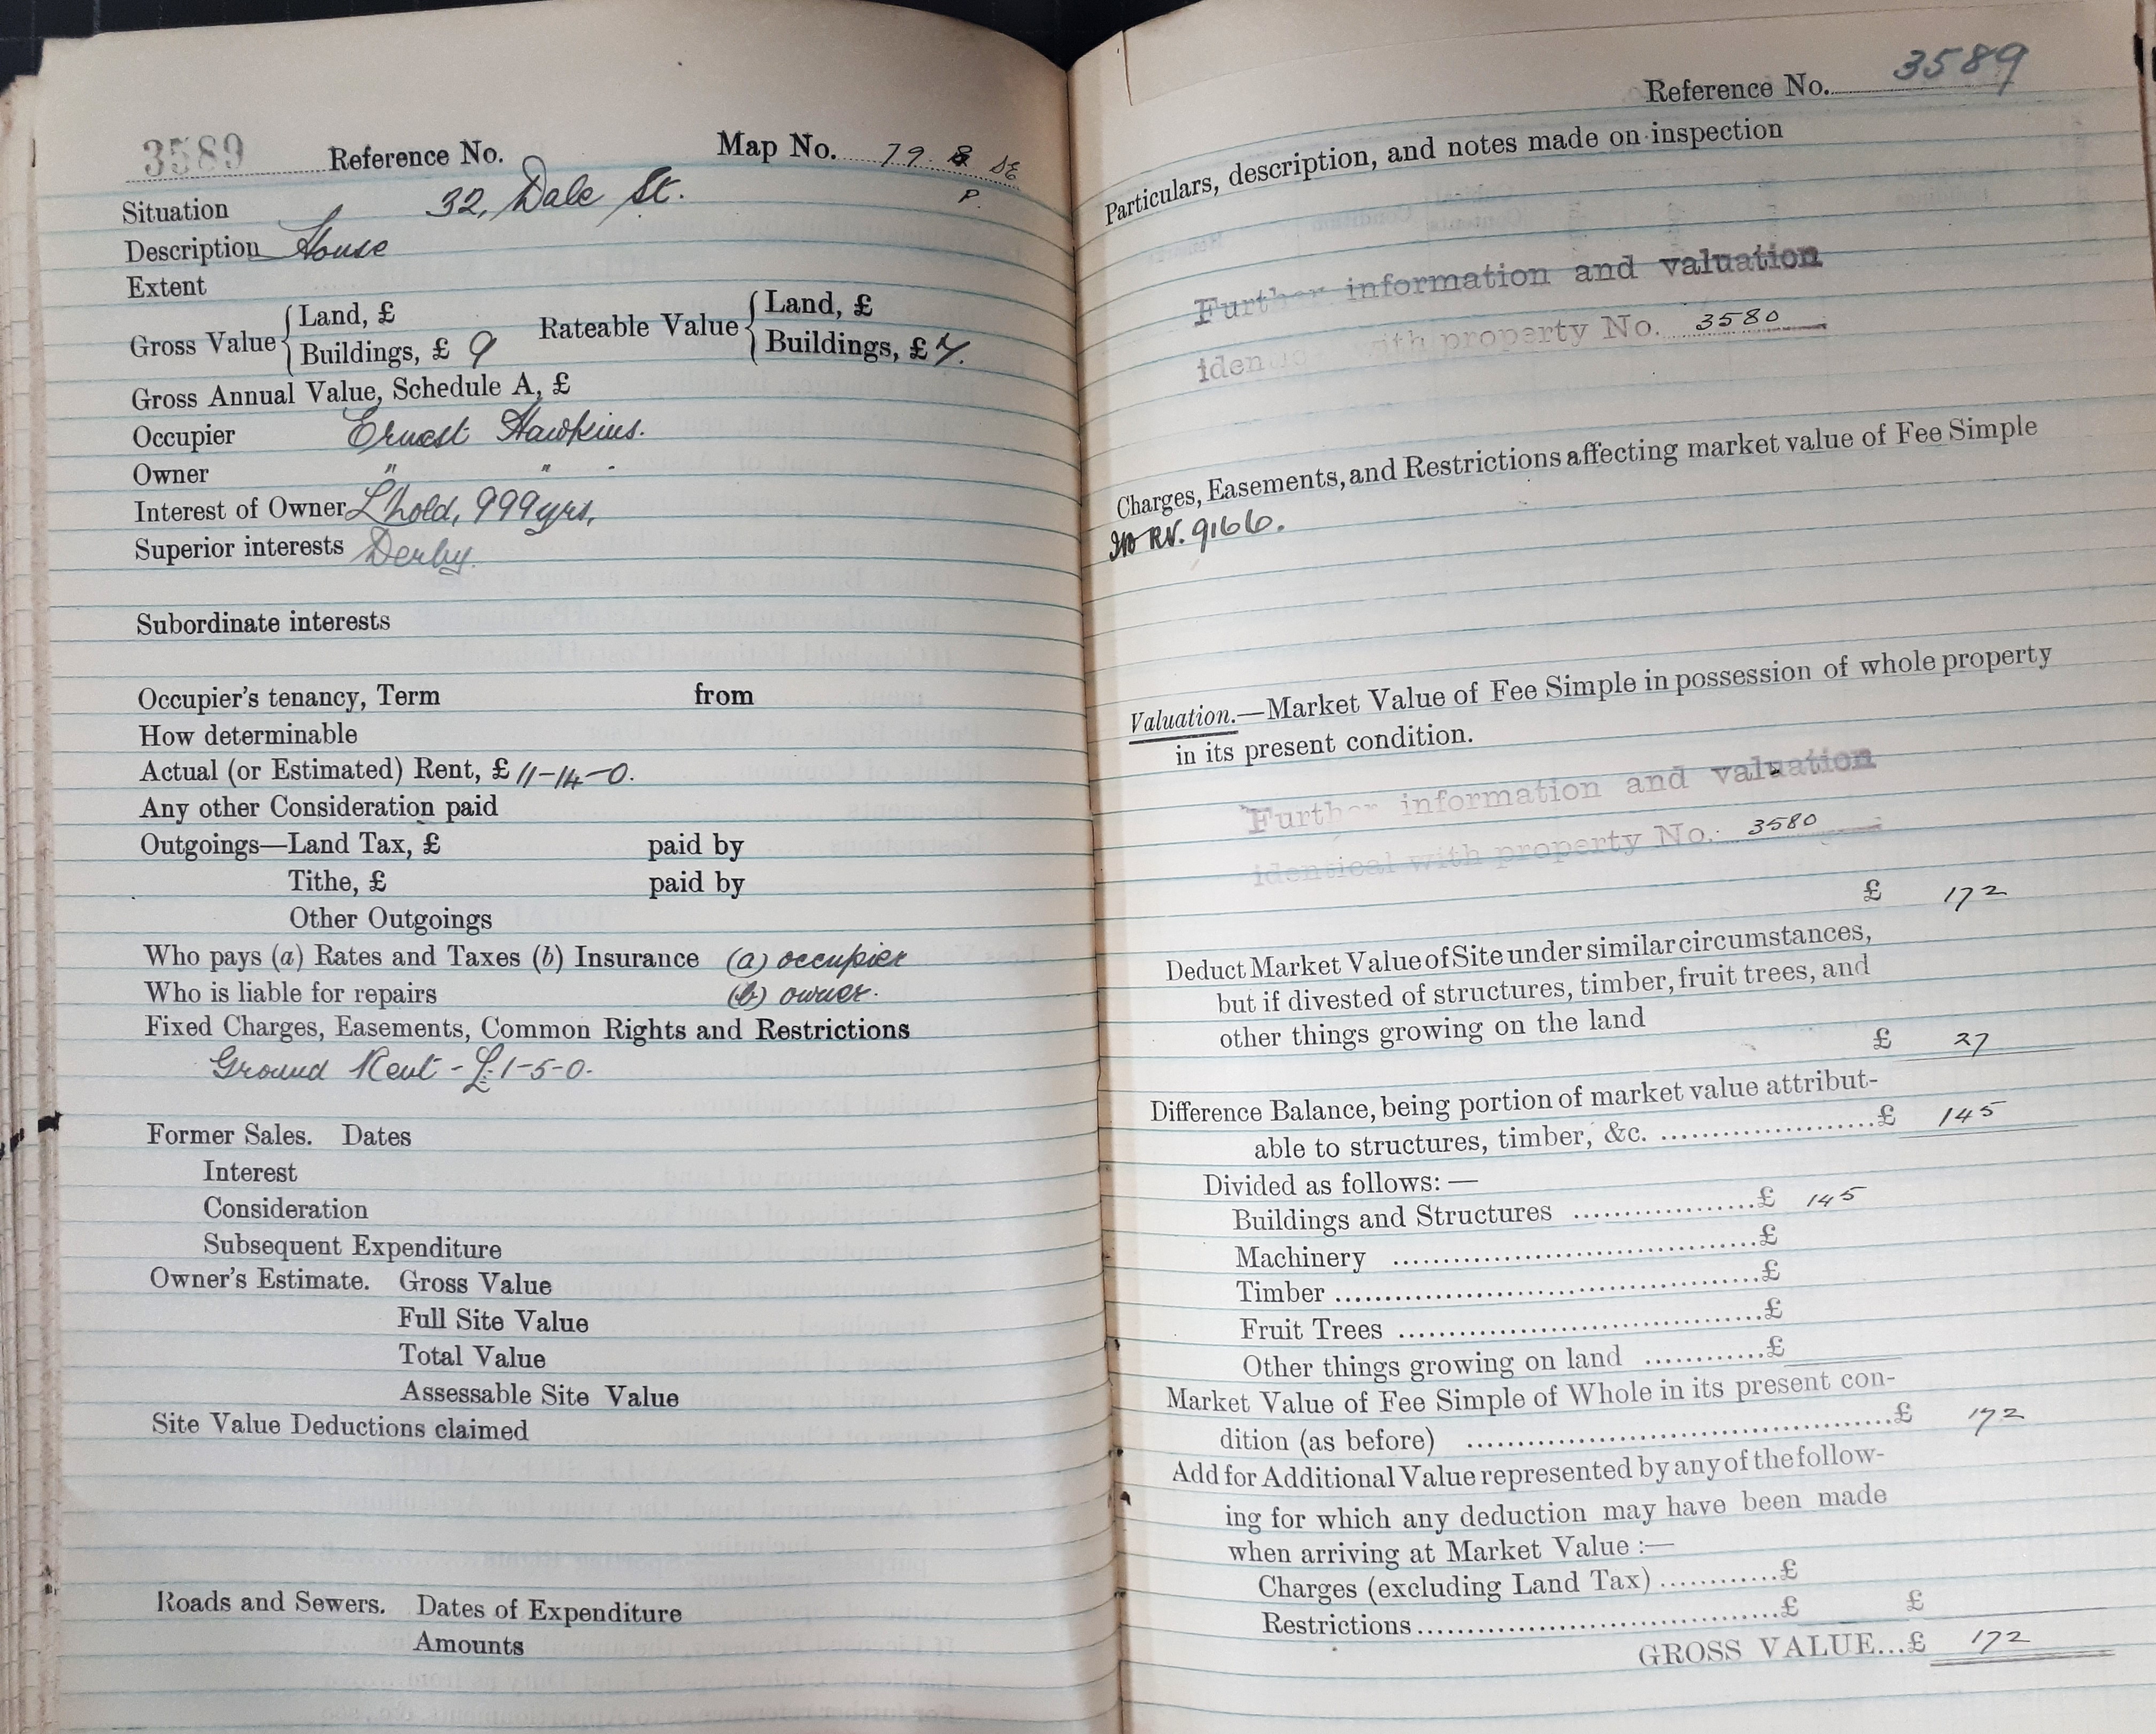 3589 Reference No. Map No. 79. 8 SE
P.
Situation 32, Dale St.
Description House
Extent
Gross Value { Land, £ Rateable Value { Land, £
Buildings, £ 9 Buildings, £ 7.
Gross Annual Value, Schedule A, £
Occupier Ernest Hawkins.
Owner " "
Interest of Owner L'hold, 999 yrs,
Superior interests Derby.
Subordinate interests
Occupier's tenancy, Term from
How determinable
Actual (or Estimated) Rent, £ 11-14-0.
Any other Consideration paid
Outgoings—Land Tax, £ paid by
Tithe, £ paid by
Other Outgoings
Who pays (a) Rates and Taxes (b) Insurance (a) occupier
Who is liable for repairs (b) owner.
Fixed Charges, Easements, Common Rights and Restrictions
Ground Rent - £1-5-0.
Former Sales. Dates
Interest
Consideration
Subsequent Expenditure
Owner's Estimate. Gross Value
Full Site Value
Total Value
Assessable Site Value
Site Value Deductions claimed
Roads and Sewers. Dates of Expenditure
Amounts
Reference No. 3589
Particulars, description, and notes made on inspection
Further information and valuation
identical with property No. 3580
Charges, Easements, and Restrictions affecting market value of Fee Simple
RV. 9166.
Valuation.—Market Value of Fee Simple in possession of whole property
in its present condition.
Further information and valuation
identical with property No. 3580
£ 172
Deduct Market Value of Site under similar circumstances,
but if divested of structures, timber, fruit trees, and
other things growing on the land
£ 27
Difference Balance, being portion of market value attribut-
able to structures, timber, &c. ....................£ 145
Divided as follows:—
Buildings and Structures ..................£ 145
Machinery ....................................£
Timber ..........................................£
Fruit Trees ....................................£
Other things growing on land ............£
Market Value of Fee Simple of Whole in its present con-
dition (as before) ..........................................£ 172
Add for Additional Value represented by any of the follow-
ing for which any deduction may have been made
when arriving at Market Value :—
Charges (excluding Land Tax) ............£
Restrictions....................................£ £
GROSS VALUE...£ 172